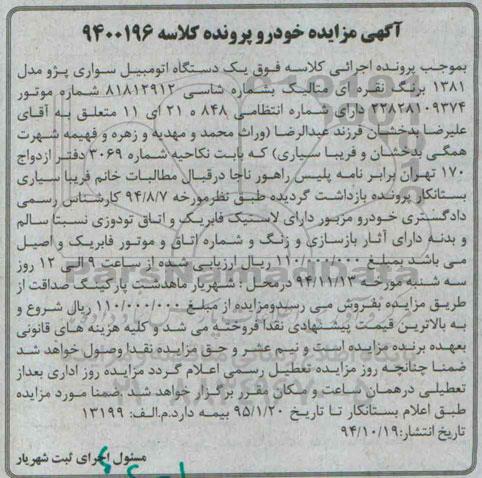 آگهی مزایده خودرو پرونده کلاسه ۹۴۰۰۱۹۶
بموجب پرونده اجرائی کلاسه فوق یک دستگاه اتومبیل سواری پژو مدل
۱۳۸۱ برنگ نقره ای متالیک بشماره شاسی ۸۱۸۱۳۹۱۲ شماره موتور
۲۲۸۲۸۱۰۹۳۷۴ دارای شماره انتظامی ۸۴۸ ه ۲۱ ای ۱۱ متعلق به آقای
علیرضا بدخشان فرزند عبدالرضا (وراث محمد و مهدیه و زهره و فهیمه شهرت
همگی بدخشان و فریبا سیاری) که بابت نکاحیه شماره ۳۰۶۹ دفتر ازدواج
۱۷۰ تهران برابر نامه پلیس راهور ناجا درقبال مطالبات خانم فریبا سیاری
بستانکار پرونده بازداشت گردیده طبق نظرمورخه ۹۴/۸/۷ کارشناس رسمی
دادگستری خودرو مزبور دارای لاستیک فابریک و اتاق تودوزی نسبتا سالم
و بدنه دارای آثار بازسازی و زنگ و شماره اتاق و موتور فابریک و اصیل
می باشد بمبلغ ۱۱۰/۰۰۰/۰۰۰ ریال ارزیابی شده از ساعت ۹ الی ۱۲ روز
سه شنبه مورخه ۹۴/۱۱/۱۳ درمحل: شهریار ماهدشت پارکینگ صداقت از
طریق مزایده بفروش می رسدومزایده از مبلغ ۱۱۰/۰۰۰/۰۰۰ ریال شروع و
به بالاترین قیمت پیشنهادی نقدا فروخته می شد و کلیه هزینه های قانونی
بعهده برنده مزایده است و نیم عشر و حق مزایده نقدا وصول خواهد شد
ضمنا چنانچه روز مزایده تعطیل رسمی اعلام گردد مزایده روز اداری بعداز
تعطیلی درهمان ساعت و مکان مقرر برگزار خواهد شد .ضمنا مورد مزایده
طبق اعلام بستانکار تا تاریخ ۹۵/۱/۲۰ بیمه دارد.م.الف: ۱۳۱۹۹
تاریخ انتشار: ۹۴/۱۰/۱۹
مسئول اجرای ثبت شهریار
ParsNamadData